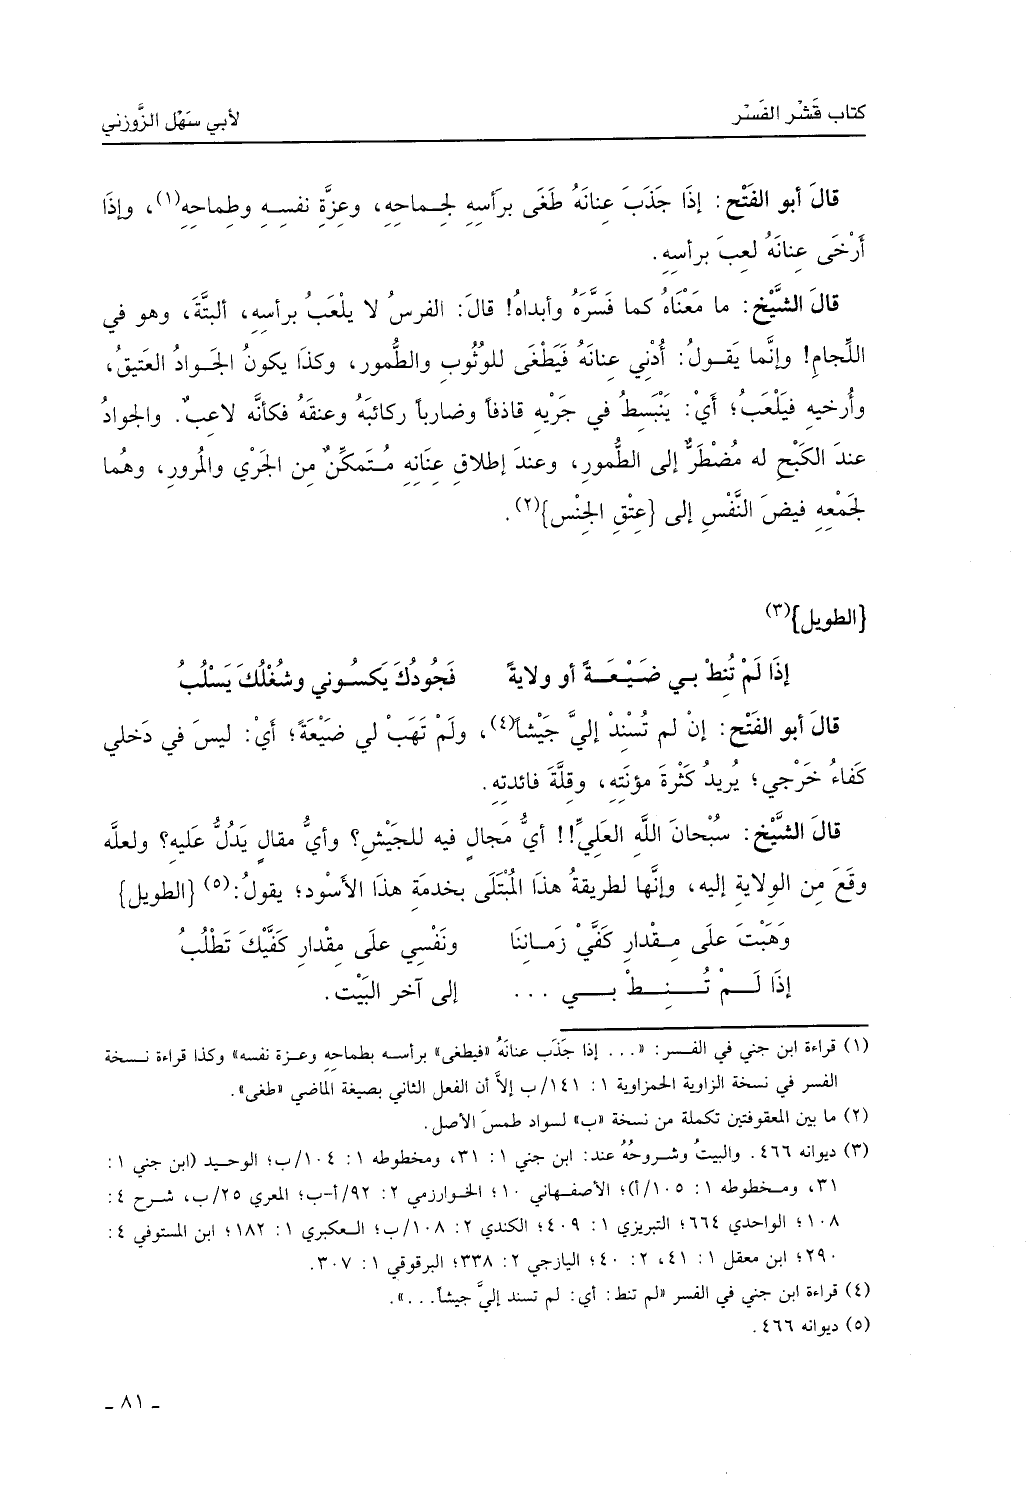 كتاب قَشْر الفَسْر
لأبي سَهْل الزَّوزني
قالَ أبو الفَتْح: إذَا جَذَبَ عِنانَهُ طَغَى برَأسِهِ لجماحِهِ، وعِزَّةِ نفسِهِ وطِماحِهِ(١)، وإذَا
أَرْخَى عِنانَهُ لعِبَ برأسِهِ.
قالَ الشَّيْخ: ما مَعْنَاهُ كما فَسَّرَهُ وأبداهُ! قالَ: الفرسُ لا يلْعَبُ برأسِهِ، ألبتَّةَ، وهو في
اللِّجامِ! وإنَّما يَقولُ: أُدْنِي عِنانَهُ فَيَطْغَى للوُثُوبِ والطُّمور، وكذَا يكونُ الجَوادُ العَتيقُ،
وأُرخيهِ فيَلْعَبُ؛ أيْ: يَنْبَسِطُ في جَرْيِهِ قاذفاً وضارباً ركائبَهُ وعنقَهُ فكأنَّه لاعبٌ. والجوادُ
عندَ الكَبْحِ له مُضْطَرٌّ إلى الطُّمور، وعندَ إطلاقِ عِنَانِهِ مُتَمكِّنٌ من الجَرْي والمُرور، وهُما
لجَمْعِهِ فيضَ النَّفْسِ إلى {عِتْقِ الجِنْس}(٢).
{الطويل}(٣)
إذَا لَمْ تُنِطْ بي ضَيْعَةً أو ولايةً فَجُودُكَ يَكسُوني وشُغْلُكَ يَسْلُبُ
قالَ أبو الفَتْح: إنْ لم تُسْنِدْ إليَّ جَيْشاً(٤)، ولَمْ تَهَبْ لي ضَيْعَةً؛ أيْ: ليسَ في دَخلي
كَفاءُ خَرْجي؛ يُريدُ كَثْرةَ مؤنَتِهِ، وقلَّةَ فائدتِهِ.
قالَ الشَّيْخ: سُبْحانَ اللَّهِ العَليِّ!! أيُّ مَجالٍ فيه للجَيْشِ؟ وأيُّ مقالٍ يَدُلُّ عليه؟ ولعلَّه
وقَعَ مِن الولايةِ إليه، وإنَّها لطريقةُ هذَا المُبْتَلَى بخدمَةِ هذَا الأسْود؛ يقولُ:(٥) {الطويل}
وَهَبْتَ على مِقْدارِ كَفَّيْ زَمانِنَا ونَفْسِي على مِقْدارِ كَفَّيْكَ تَطْلُبُ
إذَا لَمْ تُنِطْ بي ... إلى آخر البَيْت.
(١) قراءة ابن جني في الفسر: «... إذا جَذَب عنانَهُ «فيطغى» برأسه بطماحِهِ وعزة نفسه» وكذا قراءة نسخة
الفسر في نسخة الزاوية الحمزاوية ١: ١٤١/ب إلاَّ أن الفعل الثاني بصيغة الماضي «طغى».
(٢) ما بين المعقوفتين تكملة من نسخة «ب» لسواد طمسَ الأصل.
(٣) ديوانه ٤٦٦. والبيتُ وشروحُهُ عند: ابن جني ١: ٣١، ومخطوطه ١: ١٠٤/ب؛ الوحيد (ابن جني ١:
٣١، ومخطوطه ١: ١٠٥/أ)؛ الأصفهاني ١٠؛ الخوارزمي ٢: ٩٢/أ-ب؛ المعري ٢٥/ب، شرح ٤:
١٠٨؛ الواحدي ٦٦٤؛ التبريزي ١: ٤٠٩؛ الكندي ٢: ١٠٨/ب؛ العكبري ١: ١٨٢؛ ابن المستوفي ٤:
٢٩٠؛ ابن معقل ١: ٤١، ٢: ٤٠؛ اليازجي ٢: ٣٣٨؛ البرقوقي ١: ٣٠٧.
(٤) قراءة ابن جني في الفسر «لم تنط: أي: لم تسند إليَّ جيشاً...».
(٥) ديوانه ٤٦٦.
ـ ٨١ ـ